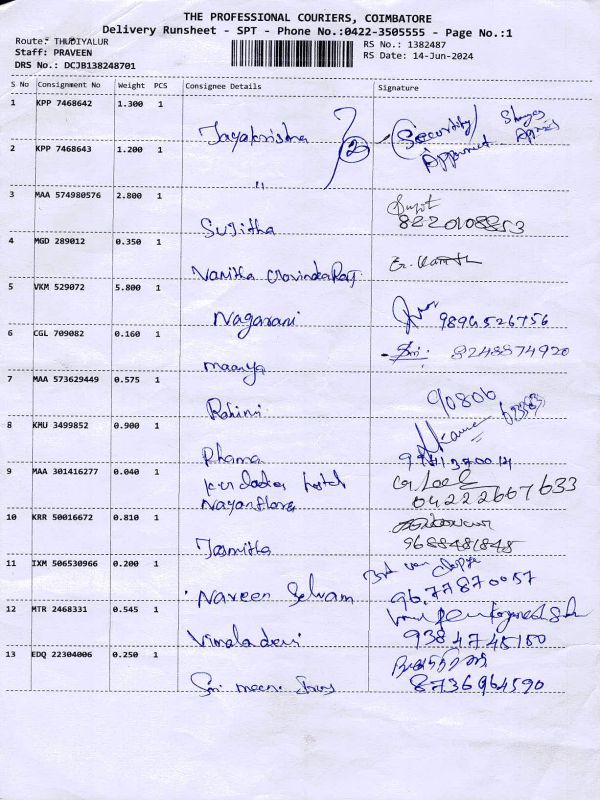 THE PROFESSIONAL COURIERS, COIMBATORE
Delivery Runsheet - SPT - Phone No.:0422-3505555 - Page No.:1
Route: THUDIYALUR
RS No.: 1382487
Staff: PRAVEEN
RS Date: 14-Jun-2024
DRS No.: DCJB138248701
S No Consignment No Weight PCS Consignee Details Signature
1 KPP 7468642 1.300 1
Jayakrishna 2 Security
2 KPP 7468643 1.200 1
"
3 MAA 574980576 2.800 1
Sujitha 8220108853
4 MGD 289012 0.350 1
Vanitha
5 VKM 529072 5.800 1
Nagarani 9894526756
6 CGL 709082 0.160 1
Maanya 8248874920
7 MAA 573629449 0.575 1
Rohini 90806
8 KMU 3499852 0.900 1
9 MAA 301416277 0.040 1
04222667633
10 KRR 50016672 0.810 1
Jasmitha 9688481848
11 IXM 506530966 0.200 1
Naveen Selvam 9677870057
12 MTR 2468331 0.545 1
Vimaladevi 9384748180
13 EDQ 22304006 0.250 1
Sri 8736964590